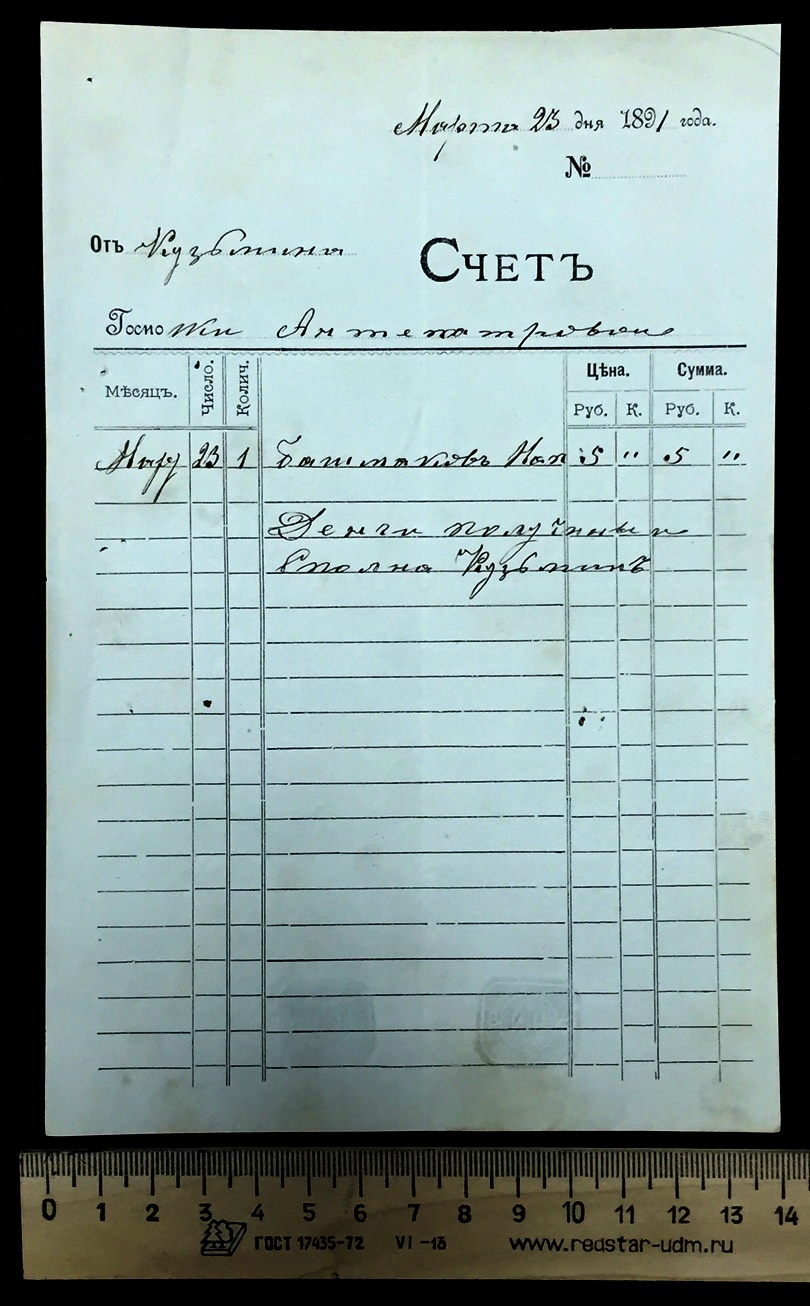 Марта 23 дня 1891 года.
№
Отъ Кузьмина
Счетъ
Госпожи Антепатровои
Мѣсяцъ. Число. Колич. Цѣна. Сумма.
Руб. К. Руб. К.
Мар 23 1 Башмаковъ 5 " 5 "
Деньги получины
Сполна Кузьминъ
0 1 2 3 4 5 6 7 8 9 10 11 12 13 14
ГОСТ 17435-72 VI-13 www.redstar-udm.ru